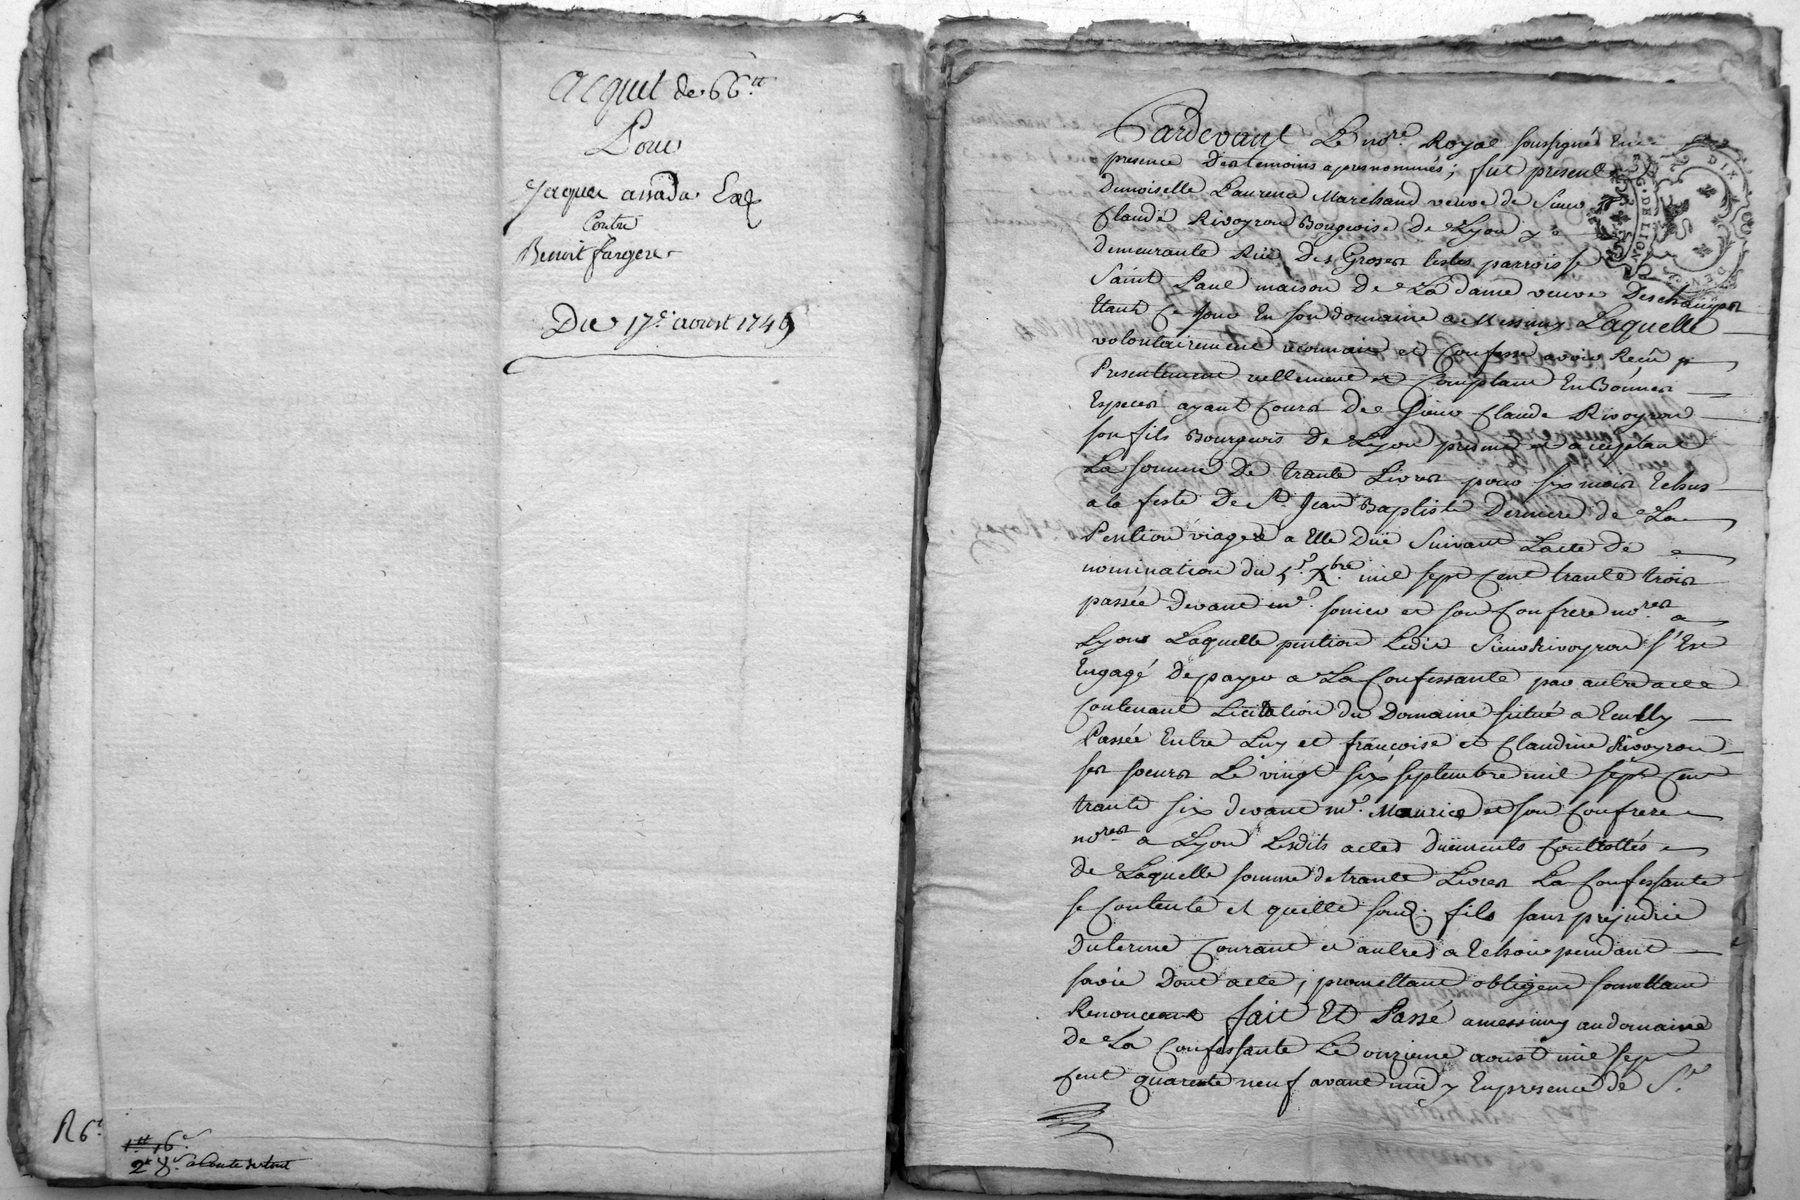 acquit de 66tt
Pour
Jacques
Contre
Benoit fargere
Du 17e aoust 1749
R 6s
1tt 16s
Pardevant Le nore Royal soussigné En
presence Des temoins apresnommés ; fut presente
Demoiselle Laurence Marchand veuve de Sieur
Claude Rivoyron Bourgeoise De Lyon y
demeurante Rue Des Grosses testes parroisse
Saint Paul maison De La dame veuve Deschamps
Etant Ce jour En son domaine a Messimy Laquelle
volontairement reconnait et Confesse avoir Reçû
Presentement reellement et Comptant En Bonnes
Especes ayant Cours De Sieur Claude Rivoyron
son fils Bourgeois de Lyon present et acceptant
La somme De trante Livres pour six mois Echus
a la feste De St Jean Baptiste Derniere de La
Pention viagere a Elle Düe Suivant Lacte De
nomination du 5e Xbre mil sept Cent trante trois
passée devant me Sonier et son Confrere nores a
Lyon Laquelle pention Ledit Sieur Rivoyron s'Est
Engagé De payer a La Confessante par autre acte
Contenant Licitation du Domaine situé a
Passée Entre Luy et françoise et Claudine Rivoyron
ses soeurs Le vingt six septembre mil sept Cent
trante six devant me Maurice et son Confrere
nores a Lyon Lesdits actes Düements Conttollés
de Laquelle somme de trante Livres La Confessante
se Contente et quitte sond. fils sans prejudice
Du terme Courant et autres a Echoir pendant
sa vie Dont acte ; promettant obligeant soumettant
Renonceant fait Et Passé a messimy au domaine
De La Confessante Le onzieme aoust mil sept
Cent quarente neuf avant midy En presence de Sr
G. DE LION
DIX
DEN